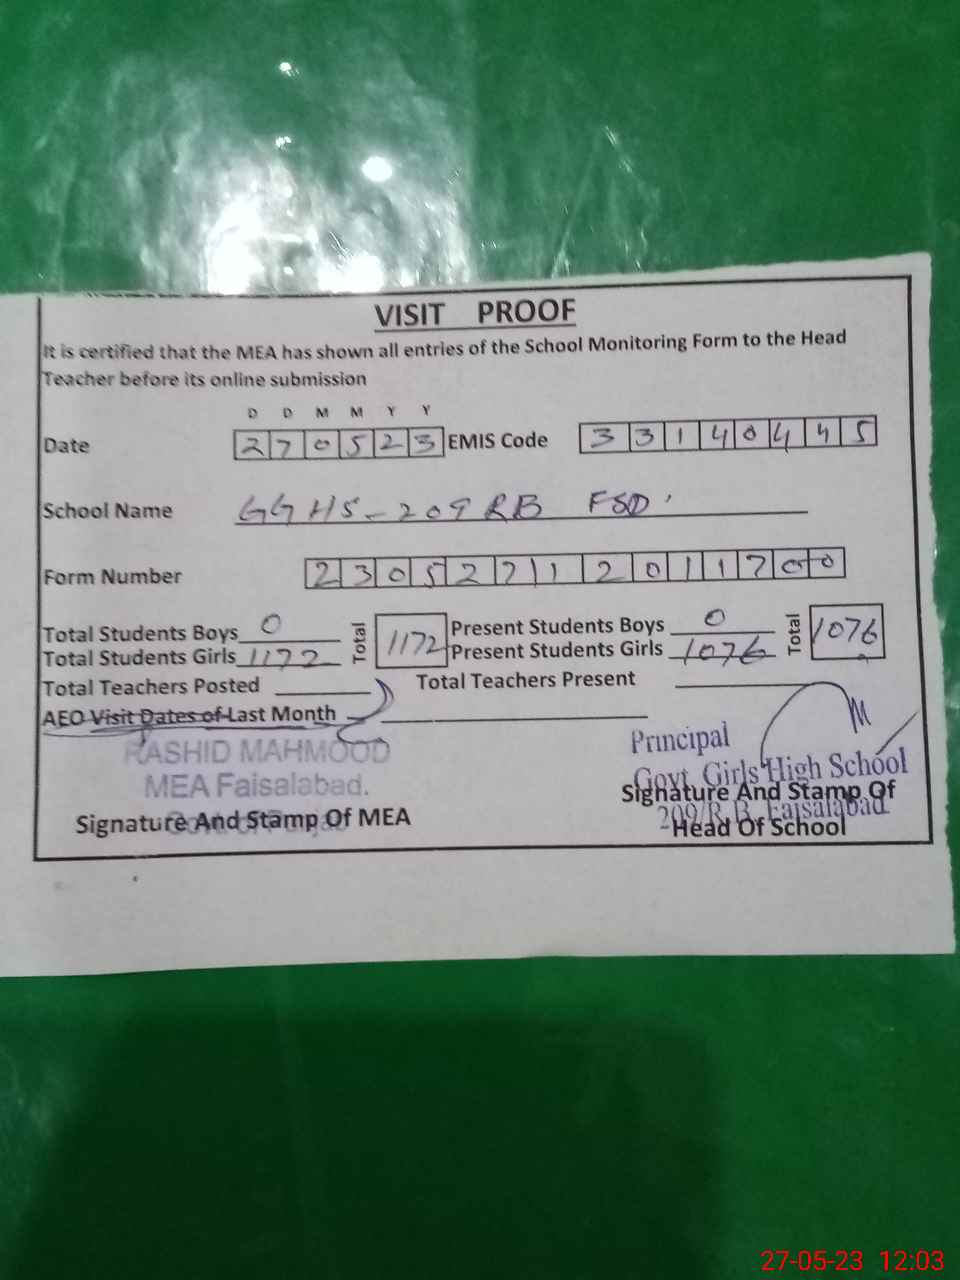 VISIT PROOF
It is certified that the MEA has shown all entries of the School Monitoring Form to the Head
Teacher before its online submission
D D M M Y Y
Date 2 7 0 5 2 3 EMIS Code 3 3 1 4 0 4 4 5
School Name GGHS-209 RB FSD
Form Number 2 3 0 5 2 7 1 1 2 0 1 1 7 0 0
Total Students Boys 0 Total 1172 Present Students Boys 0 Total 1076
Total Students Girls 1172 Present Students Girls 1076
Total Teachers Posted Total Teachers Present
AEO Visit Dates of Last Month
RASHID MAHMOOD
MEA Faisalabad.
Signature And Stamp Of MEA
Principal
Govt. Girls High School
Signature And Stamp Of
209/R.B. Faisalabad
Head Of School
27-05-23 12:03